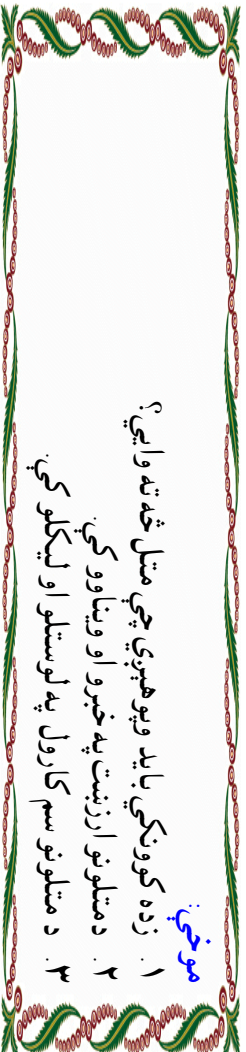 موخې:
۱. زده کوونکي بايد وپوهېږي چې متل څه ته وايي؟
۲. دمتلونو ارزښت په خبرو او ويناوو کې.
۳. د متلونو سم کارول په لوستلو او ليکلو کې.